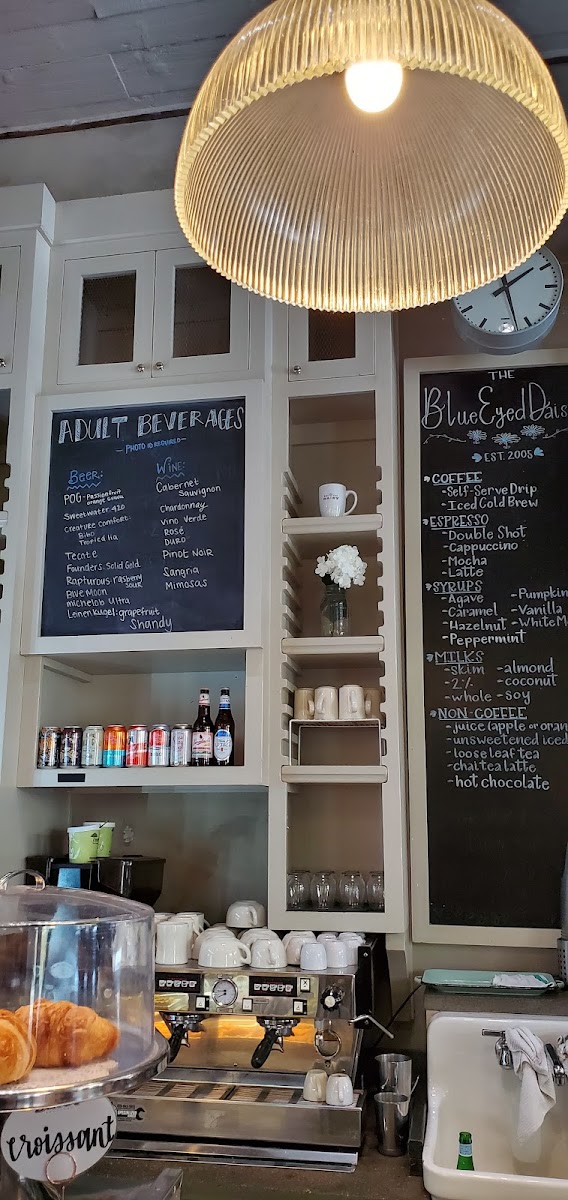 ADULT BEVERAGES
- PHOTO ID REQUIRED -
BEER:
POG - Passionfruit
orange guava
Sweetwater 420
Creature Comfort:
Bibo
Tropicalia
Tecate
Founders: Solid Gold
Rapturous: raspberry
sour
Pave Moon
michelob Ultra
Lenenkugel: grapefruit
Shandy
WINE:
Cabernet
Sauvignon
Chardonnay
Vino Verde
Rosé
Pinot Noir
Sangria
Mimosas
THE
BLueEyedDais
EST. 2005
COFFEE
-Self-Serve Drip
-Iced Cold Brew
ESPRESSO
-Double Shot
-Cappuccino
-Mocha
-Latte
SYRUPS
-Agave -Pumpkin
-Caramel -Vanilla
-Hazelnut -White M
-Peppermint
MILKS
-skim -almond
-2% -coconut
-whole -soy
NON-COFFEE
-juice (apple or oran
-unsweetened iced
-loose leaf tea
-chai tea latte
-hot chocolate
croissant